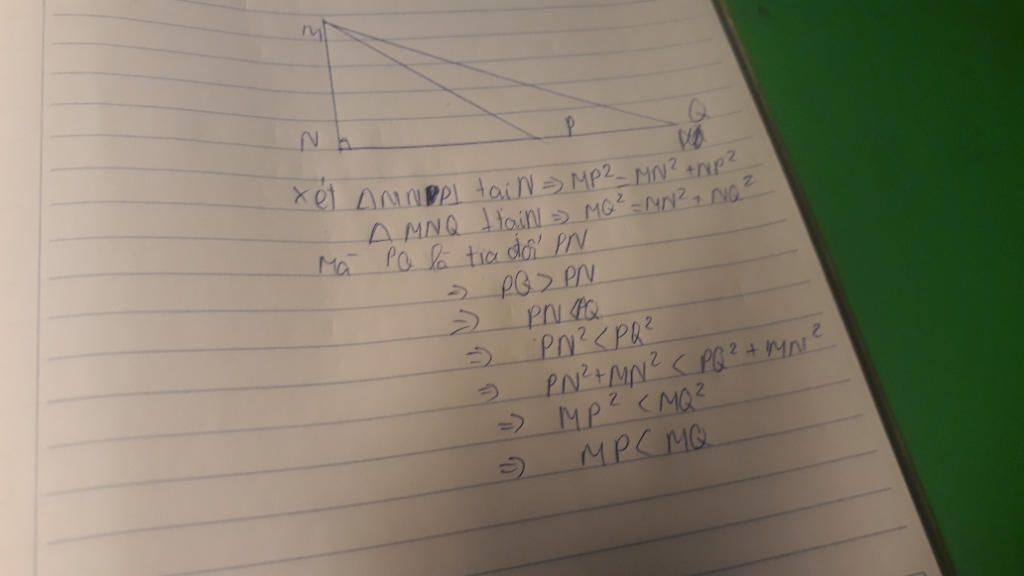 M
P
Q
N
Xét ΔMNP tại N ⇒ MP² = MN² + NP²
ΔMNQ tại N ⇒ MQ² = MN² + NQ²
Mà PQ là tia đối PN
⇒ PQ > PN
⇒ PN < PQ
⇒ PN² < PQ²
⇒ PN² + MN² < PQ² + MN²
⇒ MP² < MQ²
⇒ MP < MQ